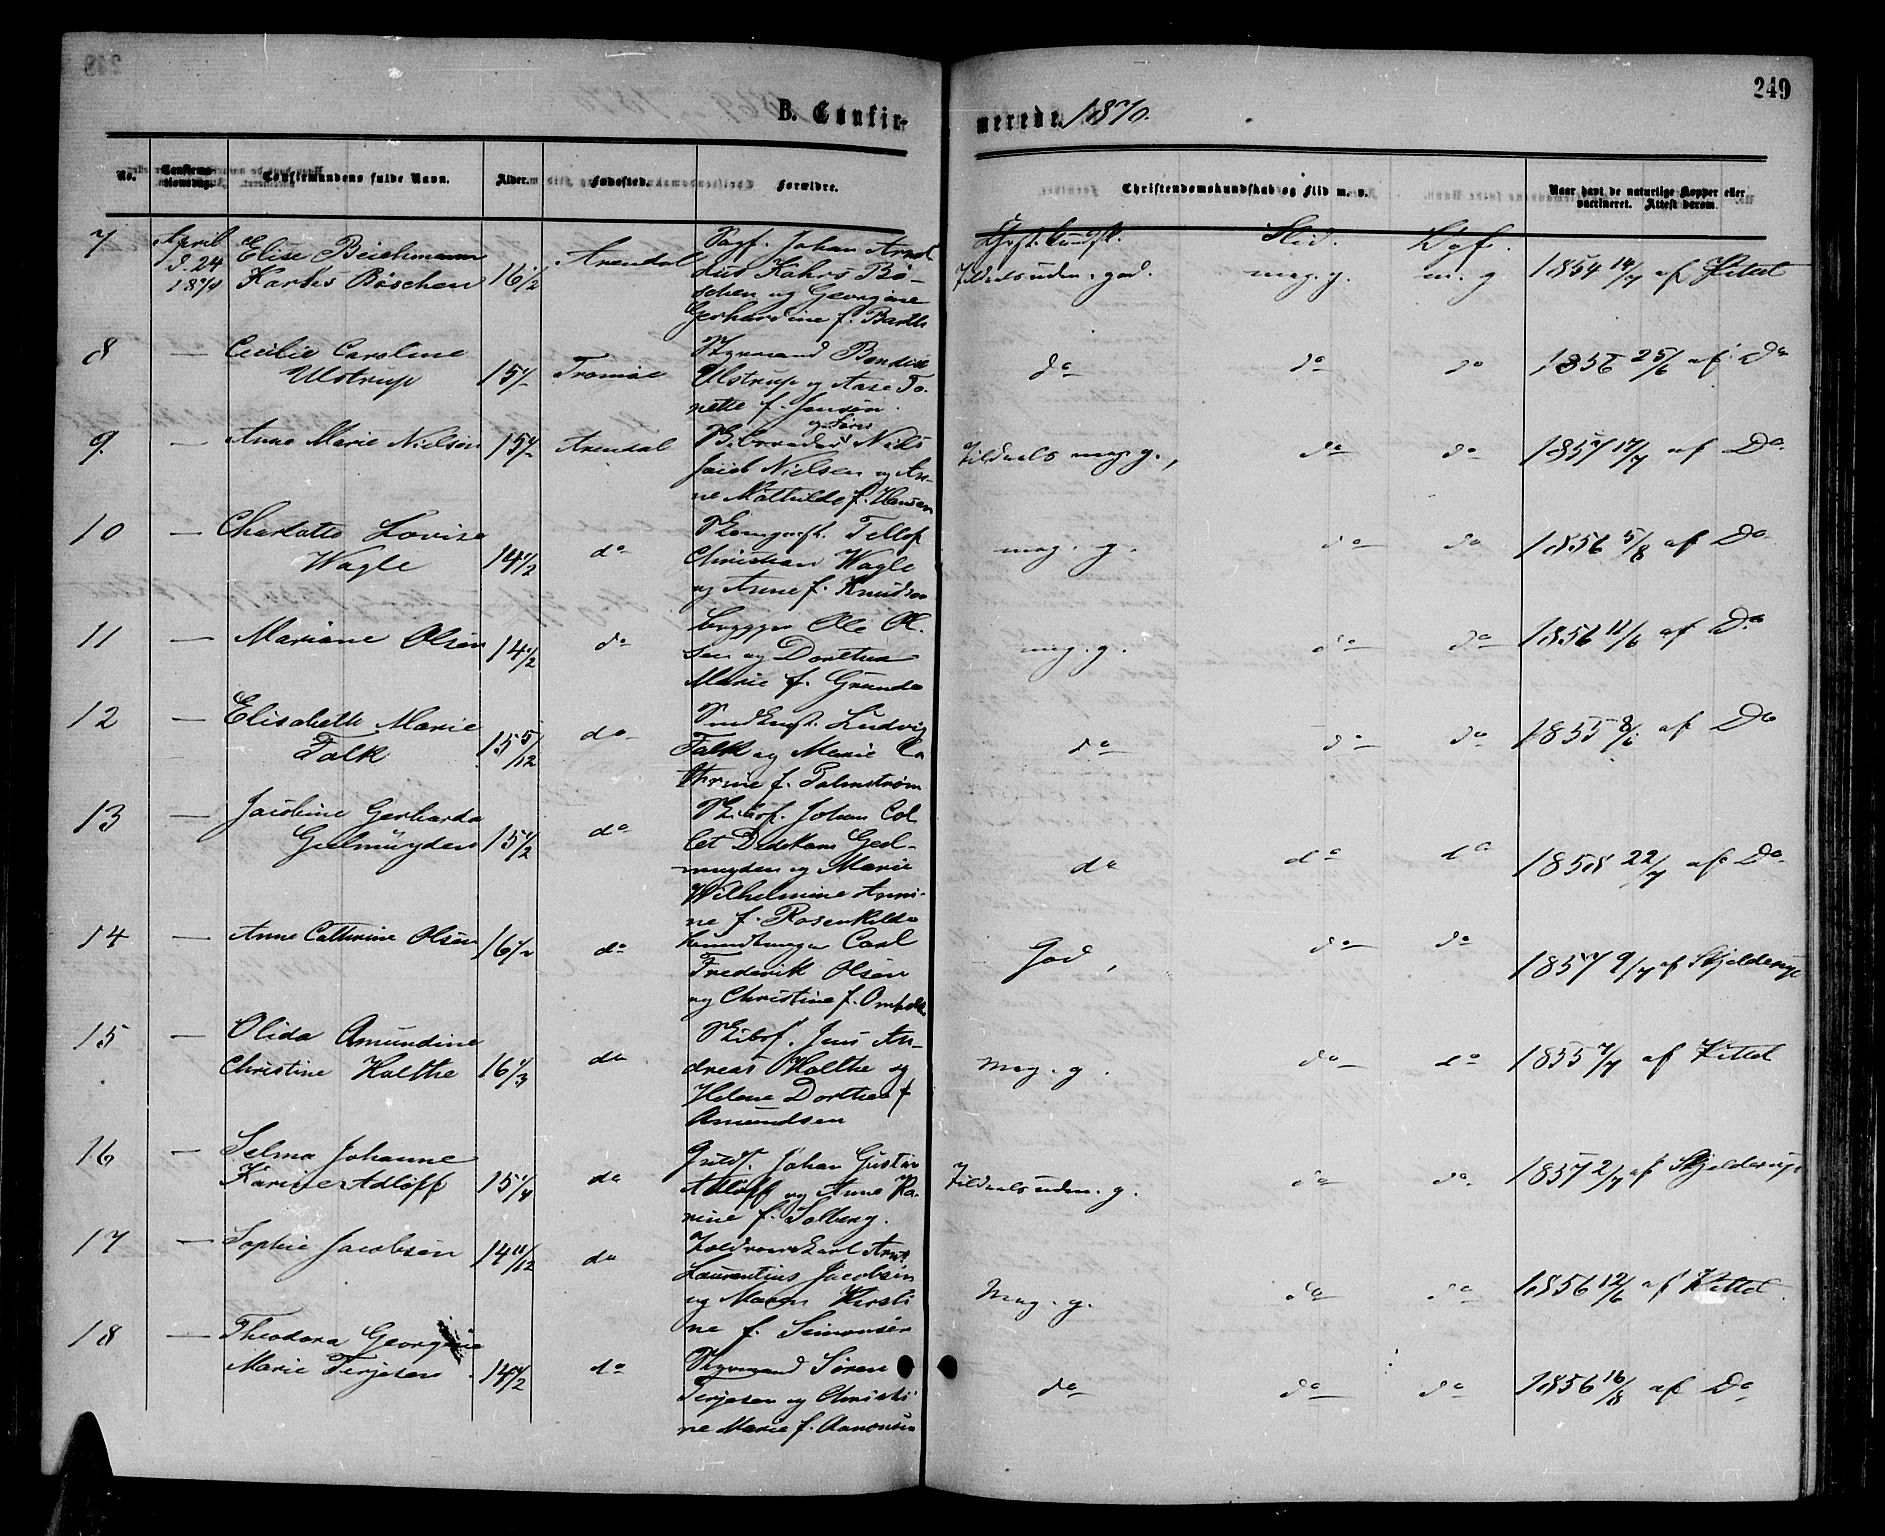 249
B. Confirmerede 1870.
No.
Confirmationsdag.
Confirmandens fulde Navn.
Alder.
Fødested.
Forældre.
Christendomskundskab og Flid m. v.
Naar havt de naturlige Kopper eller vaccineret. Attest derom.
7 April d. 24 1870 Elise Beichmann 16 1/2 Arendal
Johan
Bøschen
schen og Georgine
Gerhardine f. Barth
Flid.
Tildeels uden. god. meg. g. m. g 1854 14/7 af Kittel
8 — Cecilie Caroline
Ulstrup 15 1/2 Tromøe
Styrmand Bendix
Ulstrup og Aase To-
nette f. Jensen.
do do do 1856 25/6 af do
9. — Anne Marie Nielsen 15 1/2 Arendal
Niels
Jacob Nielsen og An-
ne Mathilde f. Hansen
Tildeels meg. g., do do 1857 17/7 af Do
10 — Charlotte Lovise
Wagle 14 1/2 do
Tellef
Christian Wagle
og Anne f. Knudsen
meg. g. do do 1856 5/8 af Do
11 — Mariane Olsen 14 1/2 do
Brygger Ole Ol-
sen og Dorthea
Marie f. Grunde
meg. g. do do 1856 11/6 af Do
12 — Elisabeth Marie
Falk 15 5/12 do
Ludvig
Falk og Marie Ca
thrine f. Palmstrøm
do do do 1855 8/6 af Do
13 — Jacobine Gerharda
Gelmuyden 15 1/2 do
Skibsf. Johan Col
let Didrikam Gel-
muyden og Marie
Wilhelmine Anni-
ne f. Rosenkilde
do do do 1858 22/7 af Do
14 — Anne Cathrine Olsen 16 1/2 do
Carl
Frederik Olsen
og Christine f.
God, do do 1857 9/7 af Skjelderup
15 — Olida Amundine
Christine Holthe 16 1/3 do
Skibsf. Jens An-
dreas Holthe og
Helene Dorthea f
Amundsen
meg. g. do do 1855 7/7 af Kittel
16 — Selma Johanne
Karine Adloff 15 1/4 do
Guldf. Johan Gustav
Adloff og Anne Ka-
rine f. Solberg.
Tildeels uden. g. do do 1857 2/7 af Skjelderup
17 — Sophie Jacobsen 14 11/12 do
Laurentius Jacobsen
og Maren Kirsti
ne f. Simonsen
Meg. g. do do 1856 12/6 af Kittel.
18 — Theodora Georgine
Marie Terjesen. 14 1/2 do
Styrmand Søren
Terjesen og Christi
ne Marie f. Aanonsen
do do do 1856 16/8 af Do